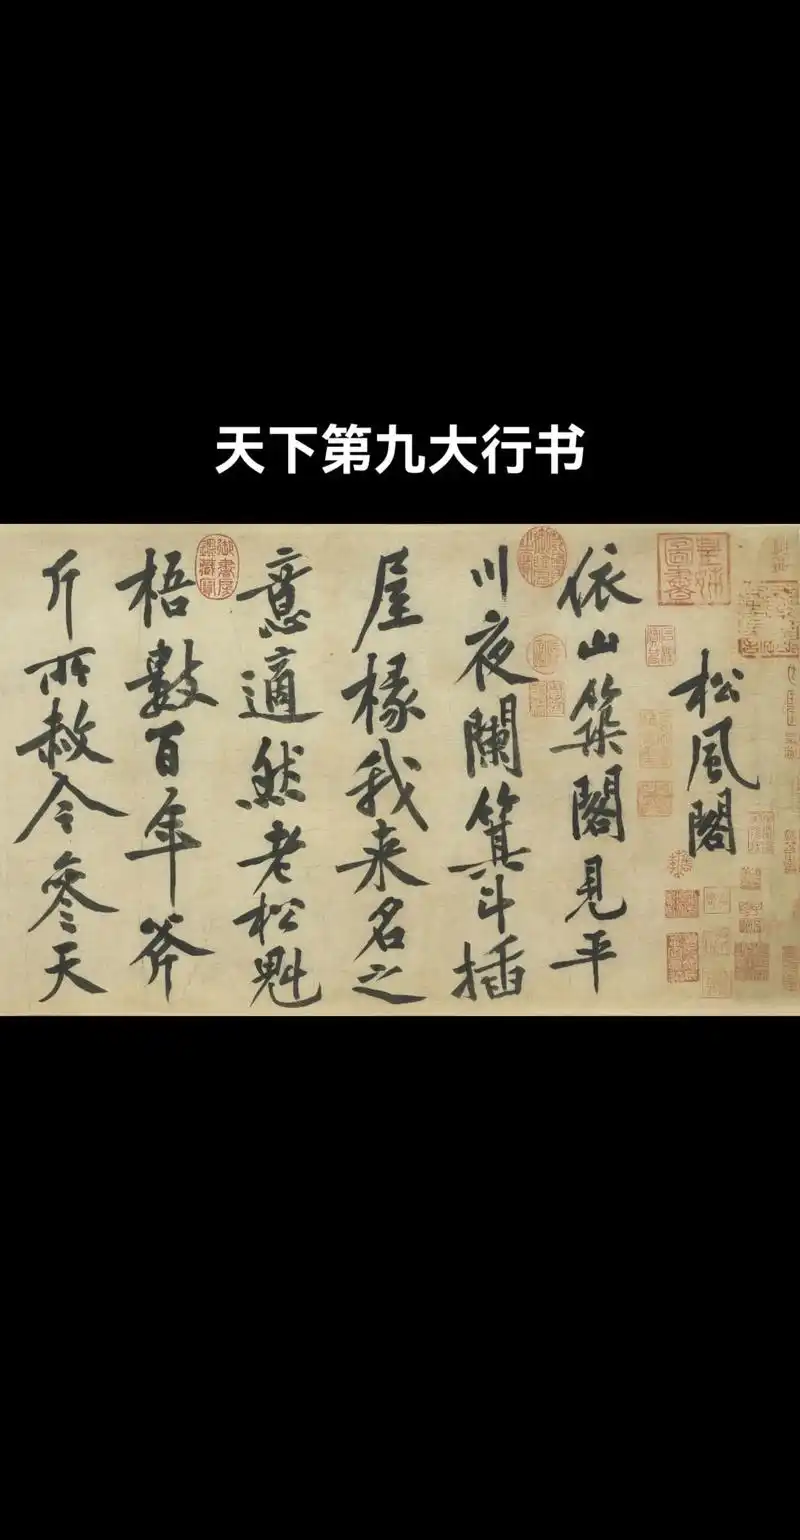 天下第九大行书
松風閣
依山築閣見平
川夜闌箕斗插
屋椽我来名之
意適然老松魁
梧數百年斧
斤所赦今參天